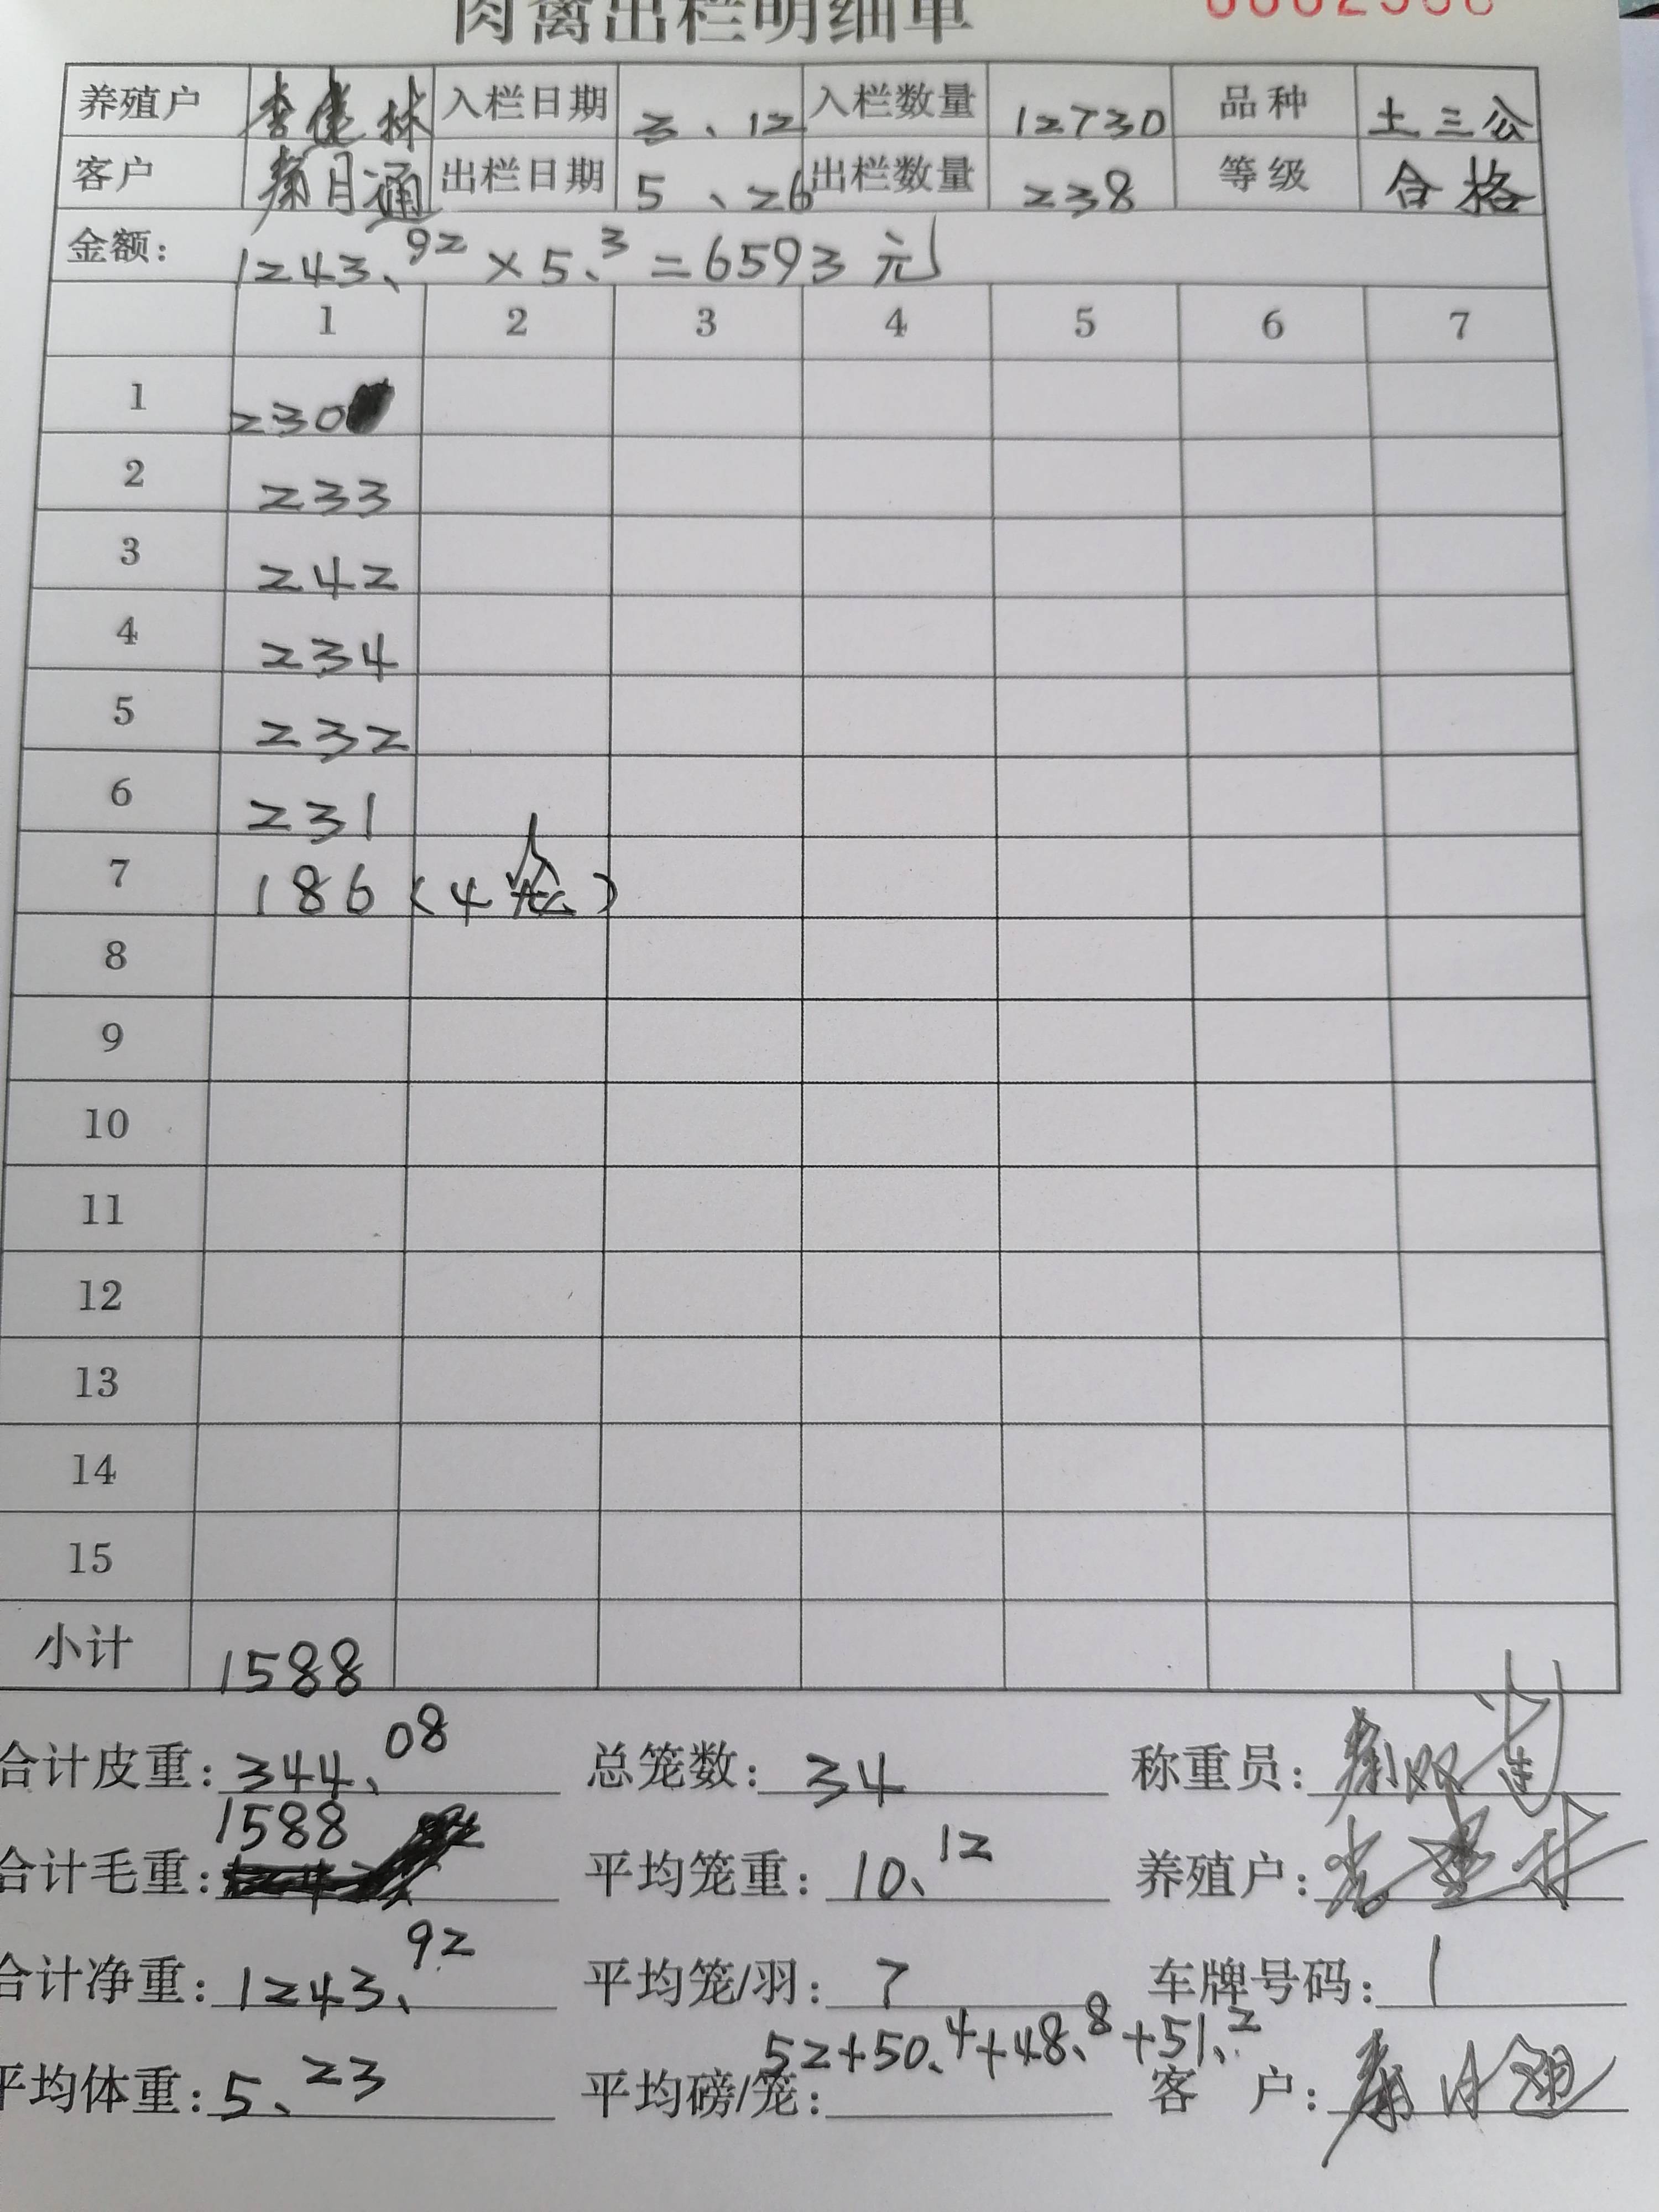 肉禽出栏明细单
养殖户 李建林 入栏日期 3、12 入栏数量 12730 品种 土三公
客户 秦月通 出栏日期 5、26 出栏数量 238 等级 合格
金额: 1243、92 × 5、3 = 6593 元
1 2 3 4 5 6 7
1 230
2 233
3 242
4 234
5 232
6 231
7 186 (4笼)
8
9
10
11
12
13
14
15
小计 1588
合计皮重: 344、08 总笼数: 34 称重员:
合计毛重: 1588 平均笼重: 10、12 养殖户:
合计净重: 1243、92 平均笼/羽: 7 车牌号码: 1
52+50、4+48、8+51、2
平均体重: 5、23 平均磅/笼: 客户: